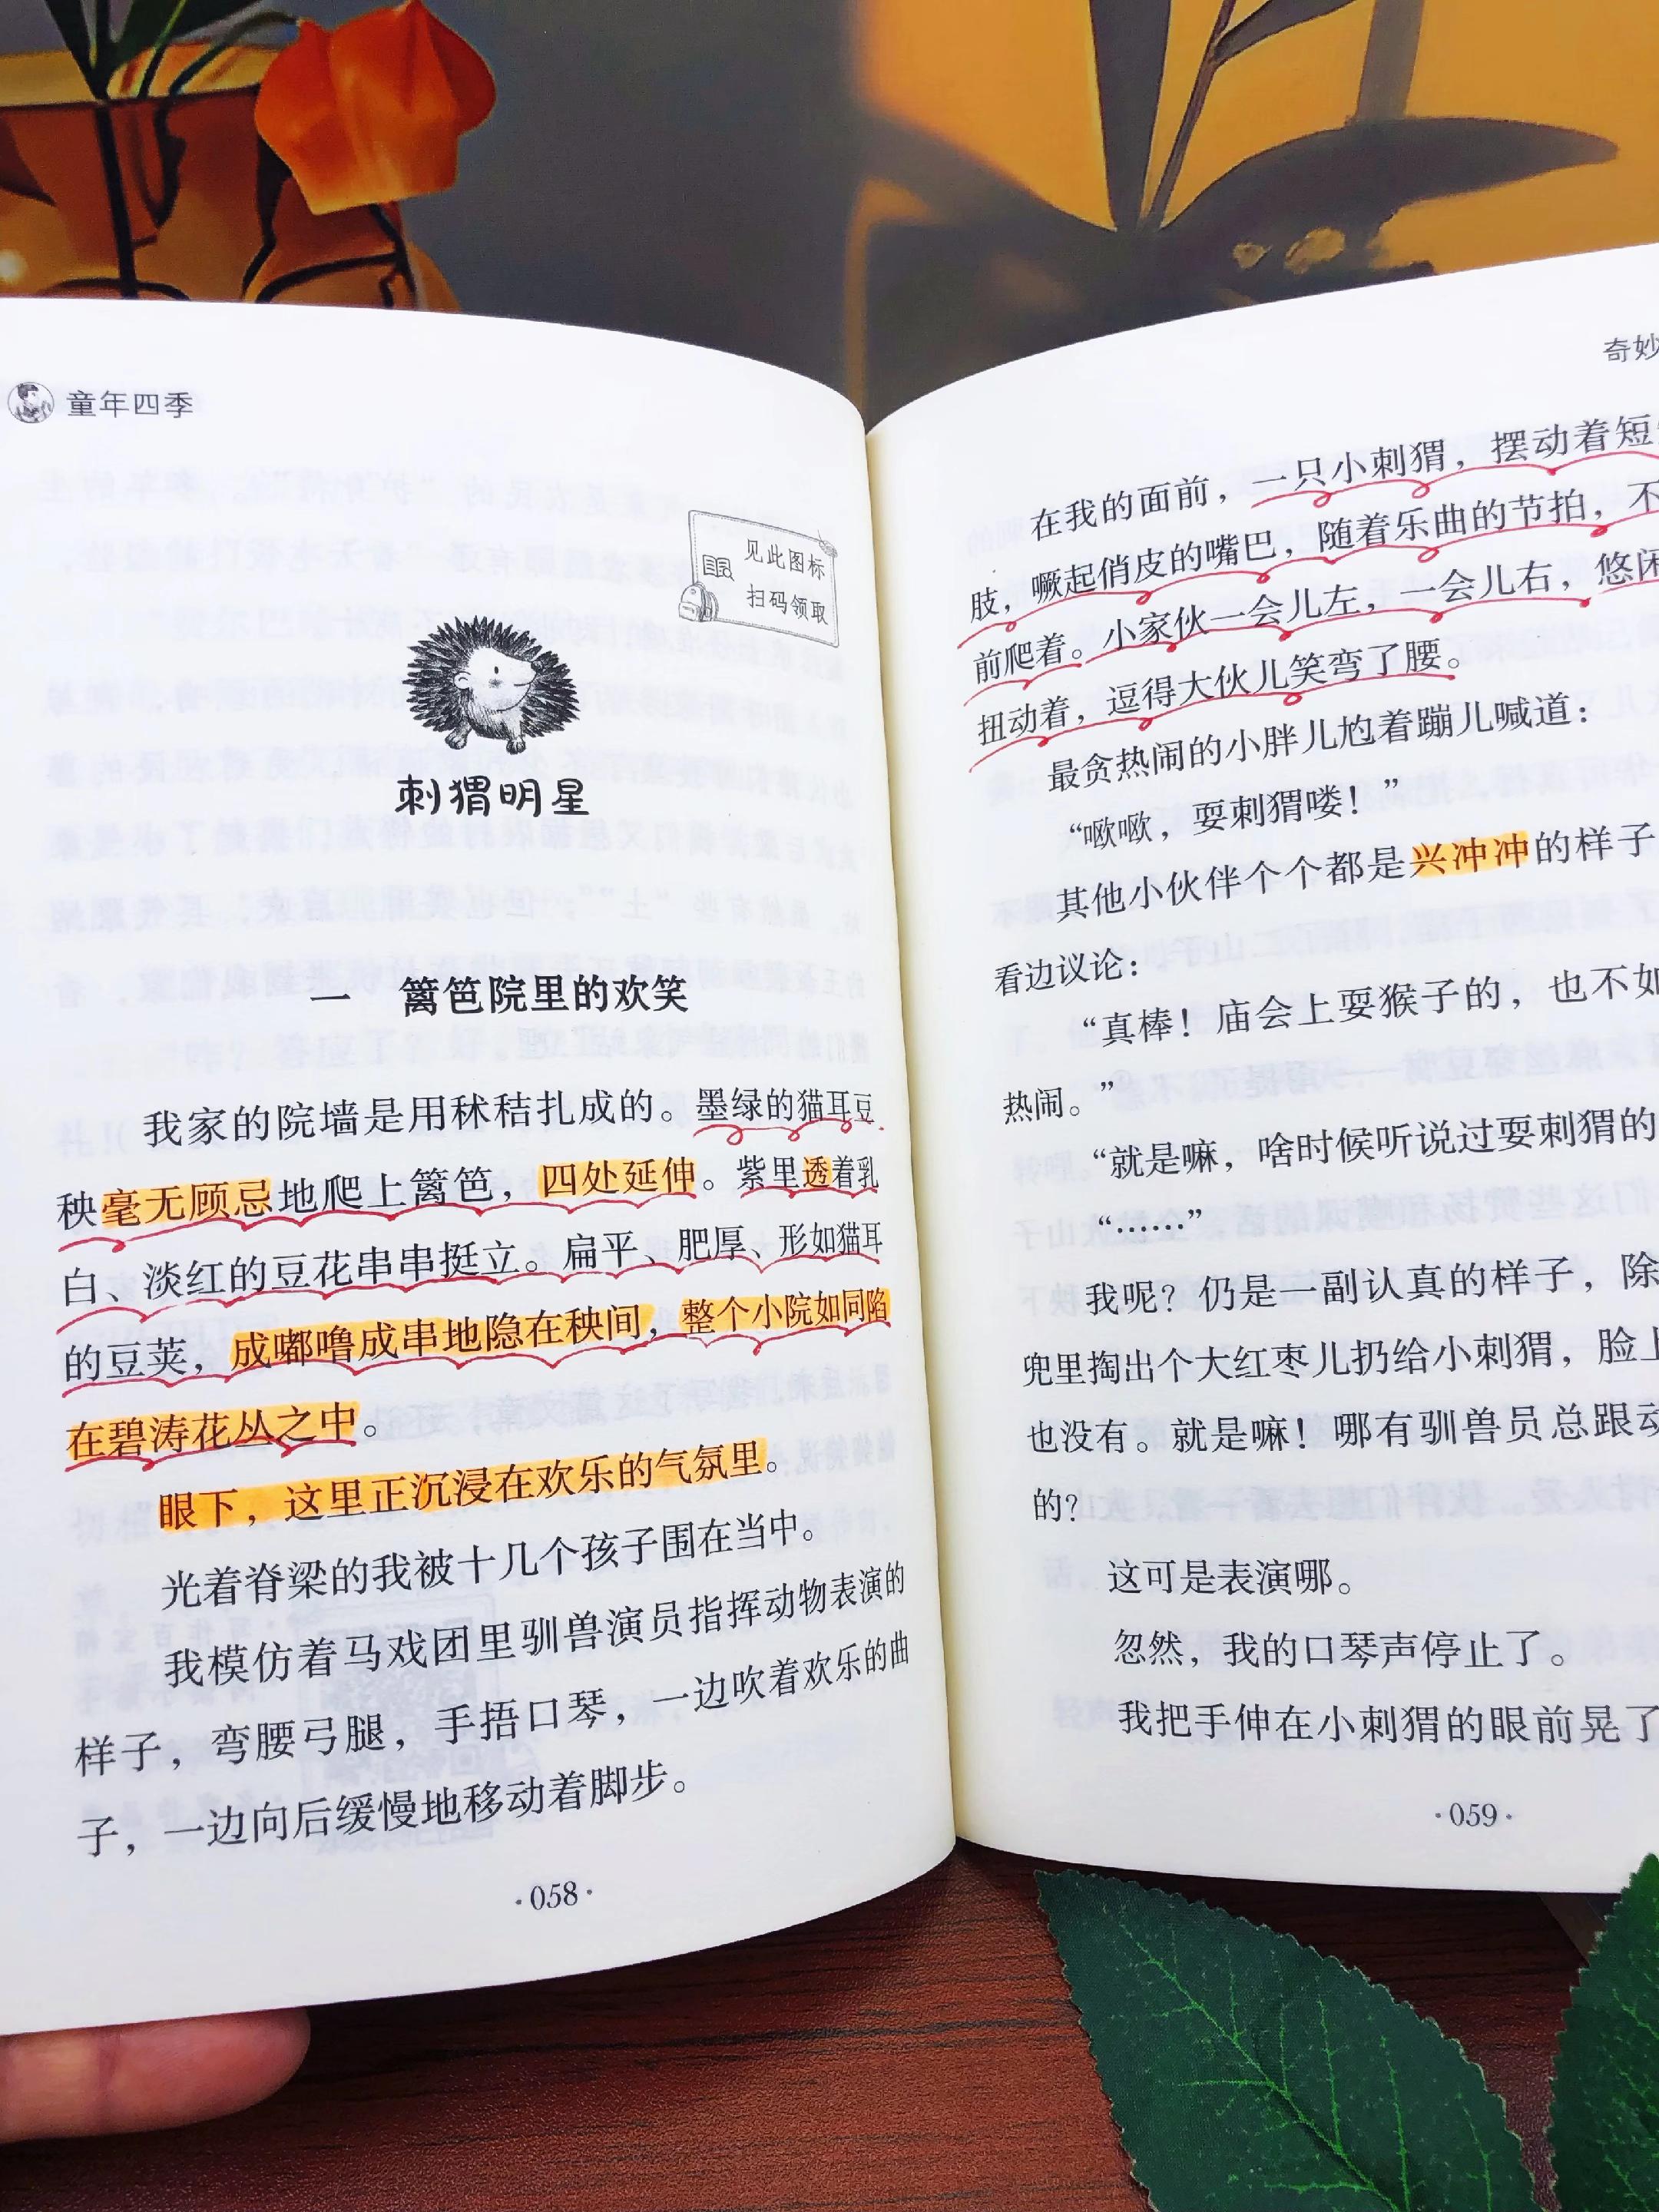 童年四季
见此图标
扫码领取
刺猬明星
一 篱笆院里的欢笑
我家的院墙是用秫秸扎成的。墨绿的猫耳豆
秧毫无顾忌地爬上篱笆，四处延伸。紫里透着乳
白、淡红的豆花串串挺立。扁平、肥厚、形如猫耳
的豆荚，成嘟噜成串地隐在秧间，整个小院如同陷
在碧涛花丛之中。
眼下，这里正沉浸在欢乐的气氛里。
光着脊梁的我被十几个孩子围在当中。
我模仿着马戏团里驯兽演员指挥动物表演的
样子，弯腰弓腿，手捂口琴，一边吹着欢乐的曲
子，一边向后缓慢地移动着脚步。
·058·
奇妙
在我的面前，一只小刺猬，摆动着短
肢，噘起俏皮的嘴巴，随着乐曲的节拍，不
前爬着。小家伙一会儿左，一会儿右，悠闲
扭动着，逗得大伙儿笑弯了腰。
最贪热闹的小胖儿尥着蹦儿喊道：
“噷噷，耍刺猬喽！”
其他小伙伴个个都是兴冲冲的样子
看边议论：
“真棒！庙会上耍猴子的，也不如
热闹。”
“就是嘛，啥时候听说过耍刺猬的
“……”
我呢？仍是一副认真的样子，除
兜里掏出个大红枣儿扔给小刺猬，脸上
也没有。就是嘛！哪有驯兽员总跟动
的？
这可是表演哪。
忽然，我的口琴声停止了。
我把手伸在小刺猬的眼前晃了
·059·